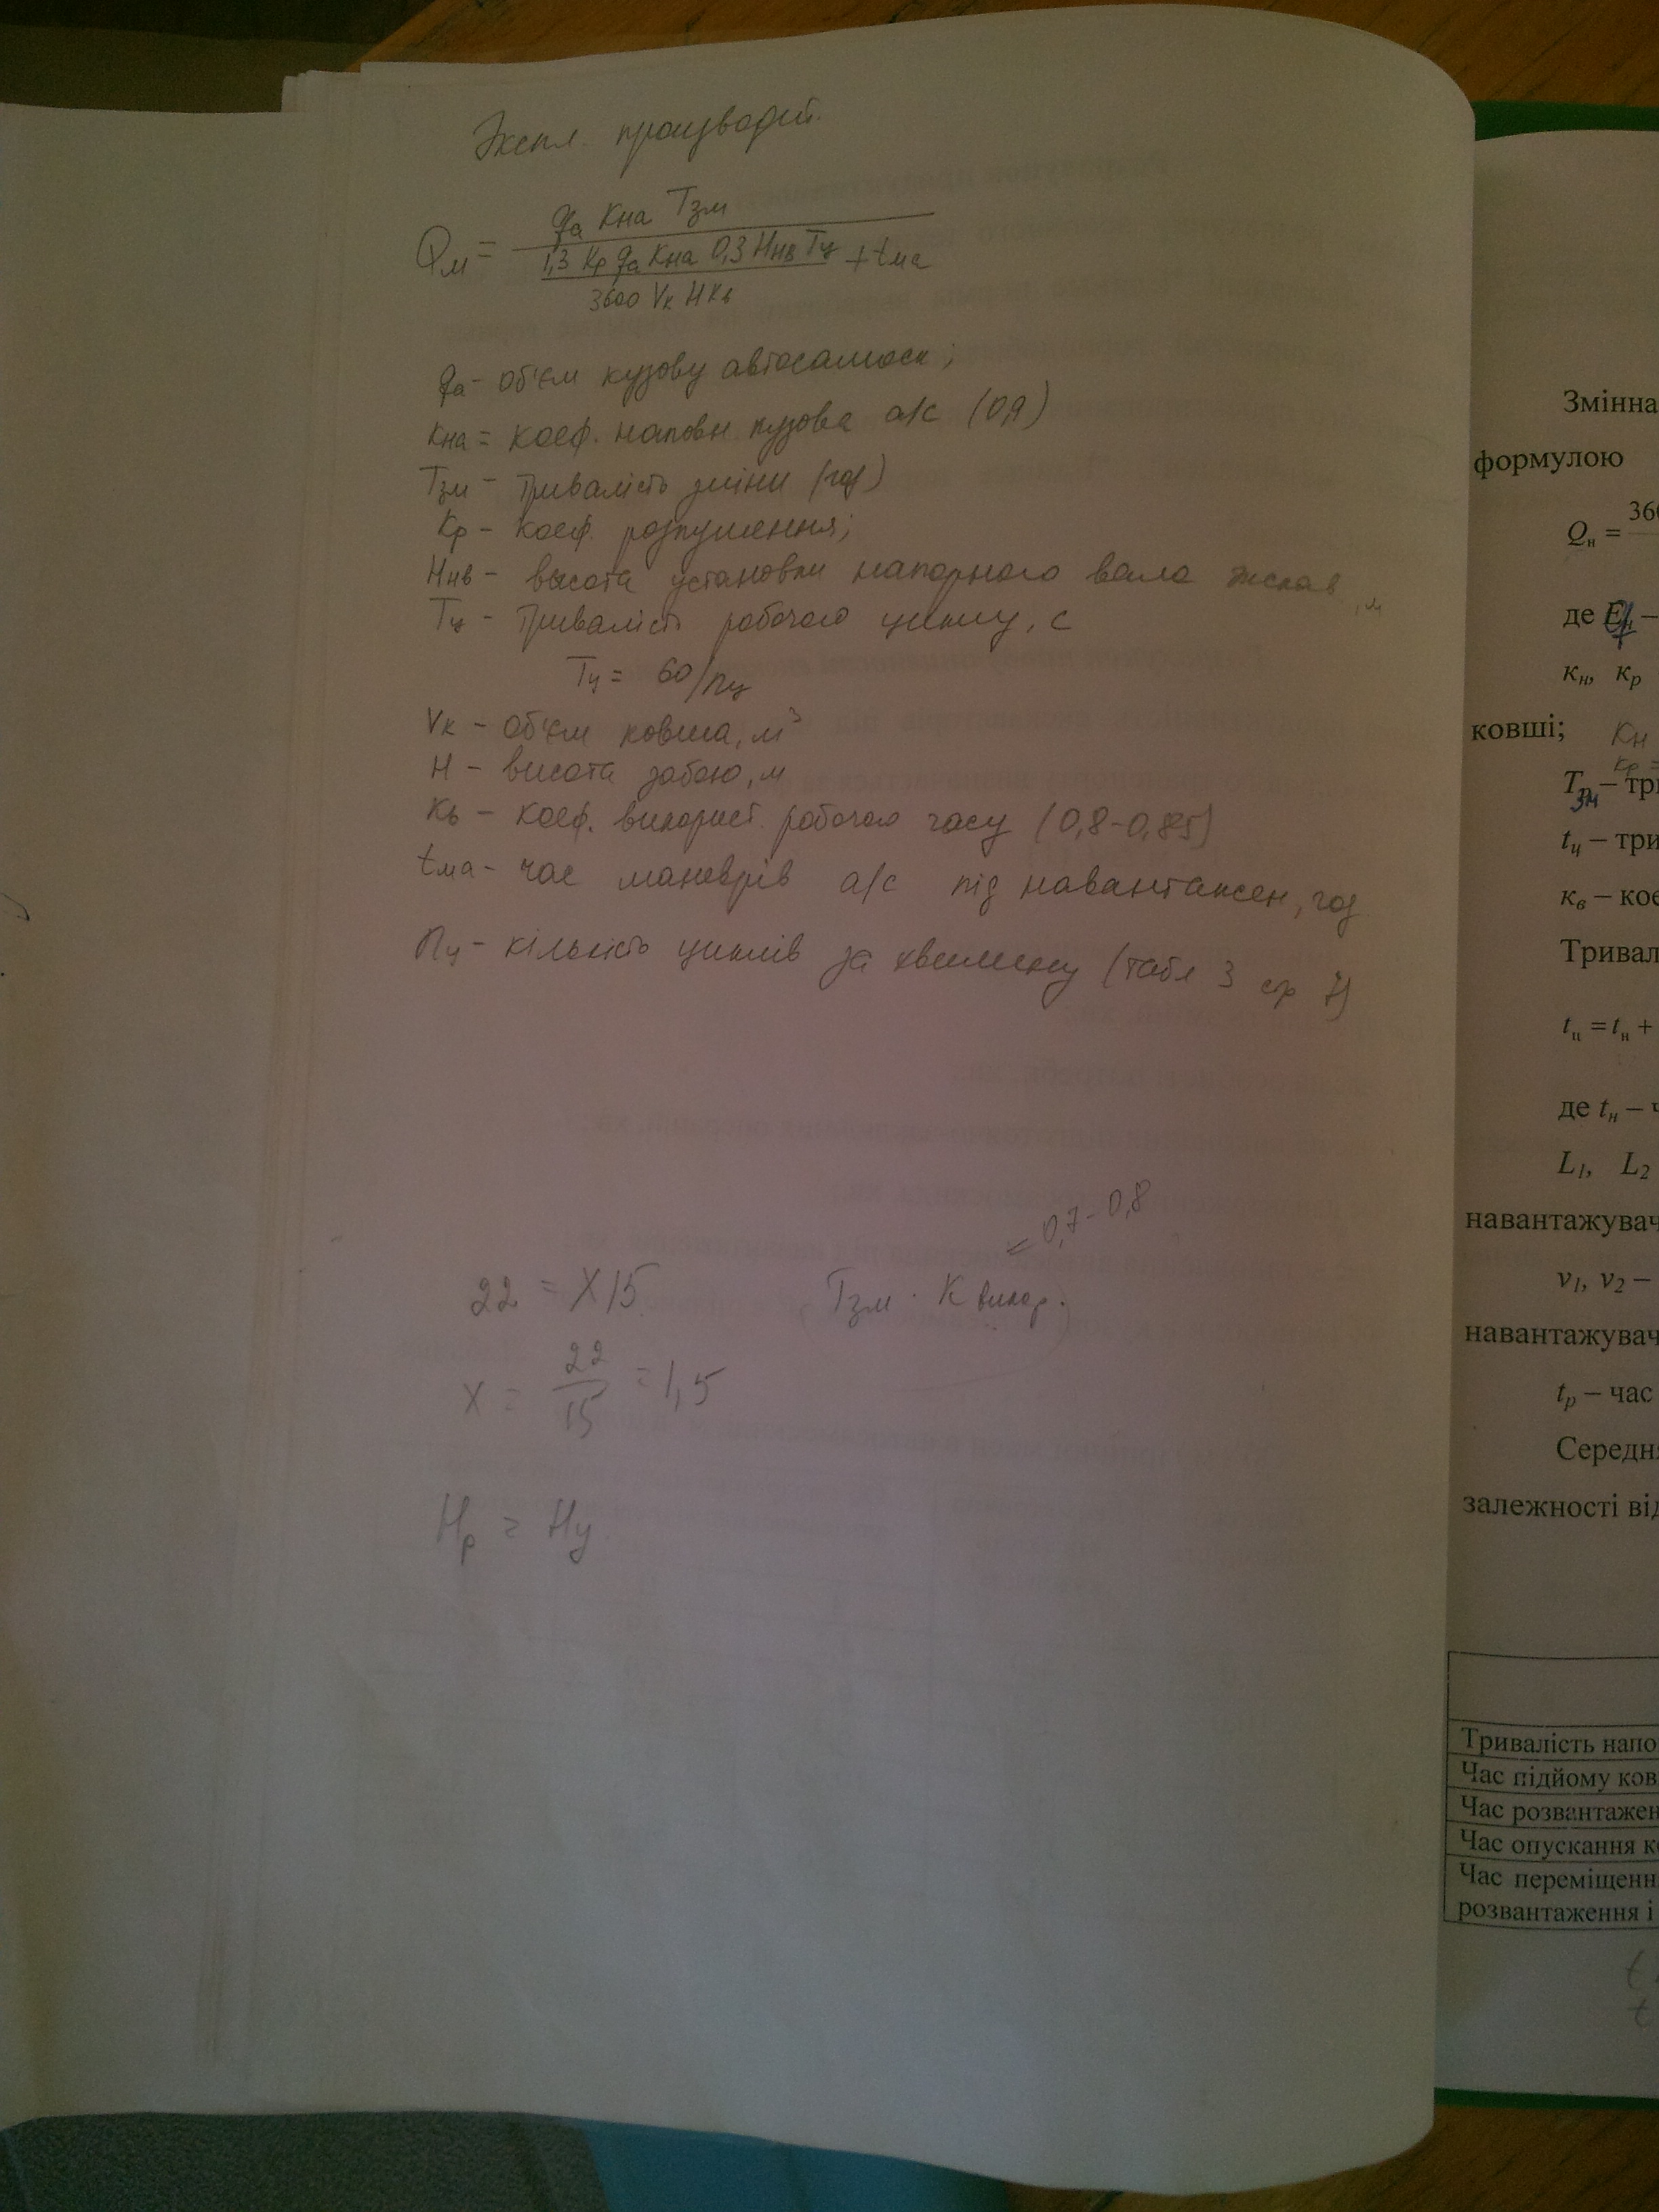 Экспл. производит.
Qм = qа Кна Тзм
1,3 Кр qа Кна 0,3 Ннв Тц + tма
3600 Vк Н Кв
qа - об'єм кузову автосамоск;
Кна = коеф. наповн кузова а/с (0,9)
Тзм - тривалість зміни (год)
Кр - коеф. розпушення;
Ннв - высота установки напорного вала экскав, м
Тц - тривалість робочого циклу, с
Тц = 60/nц
Vк - об'єм ковша, м³
Н - висота забою, м
Кв - коеф. використ. робочого часу (0,8-0,85)
tма - час маневрів а/с під навантажен, год
nц - кількість циклів за хвилину (табл 3 стр 7)
= 0,7-0,8
22 = X 15 Тзм · К викор.
X = 22/15 = 1,5
Нр = Ну
Змінна
формулою
Qн = 360
де
кн, кр
ковші; Кн
кр =
Т зм – три
tц – три
кв – кое
Тривал
tц = tн +
де tн – ч
L1, L2
навантажувач
v1, v2 –
навантажувач
tр – час
Середня
залежності від
Тривалість напо
Час підйому ков
Час розвантажен
Час опускання к
Час переміщенн
розвантаження і
t
t